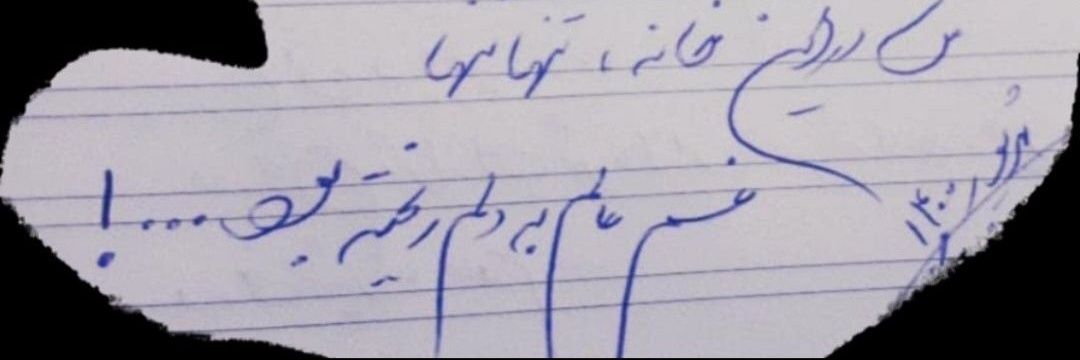 من در این خانه، تنها تنها
غم عالم به دلم ریخته بود...!